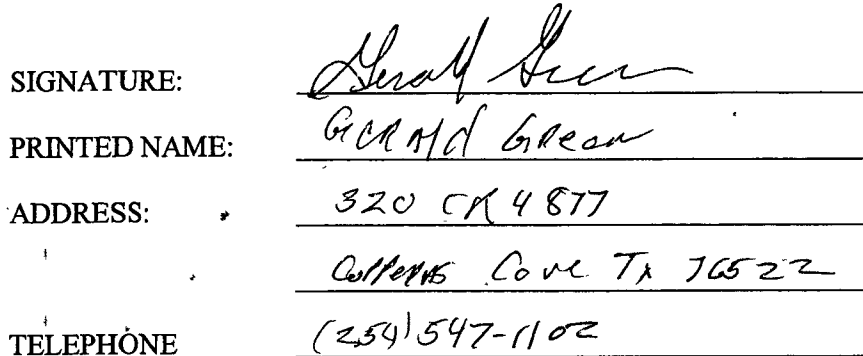 SIGNATURE: Gerald Green
PRINTED NAME: GERALD GREEN
ADDRESS: 320 CR 4877
Copperas Cove Tx 76522
TELEPHONE (254) 547-1102